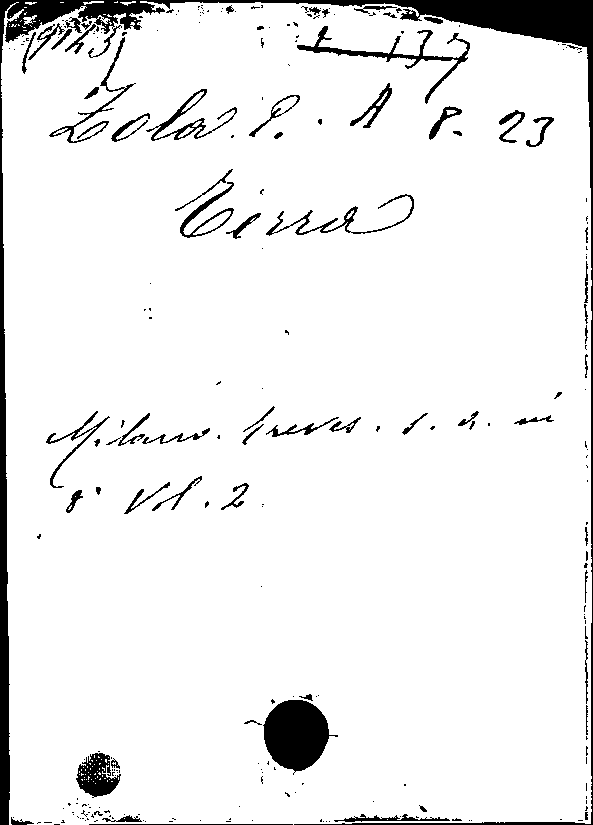 (9143)
137
Zola. E. A 8. 23
Terra
Milano. Treves. s. d. in
8° Vol. 2